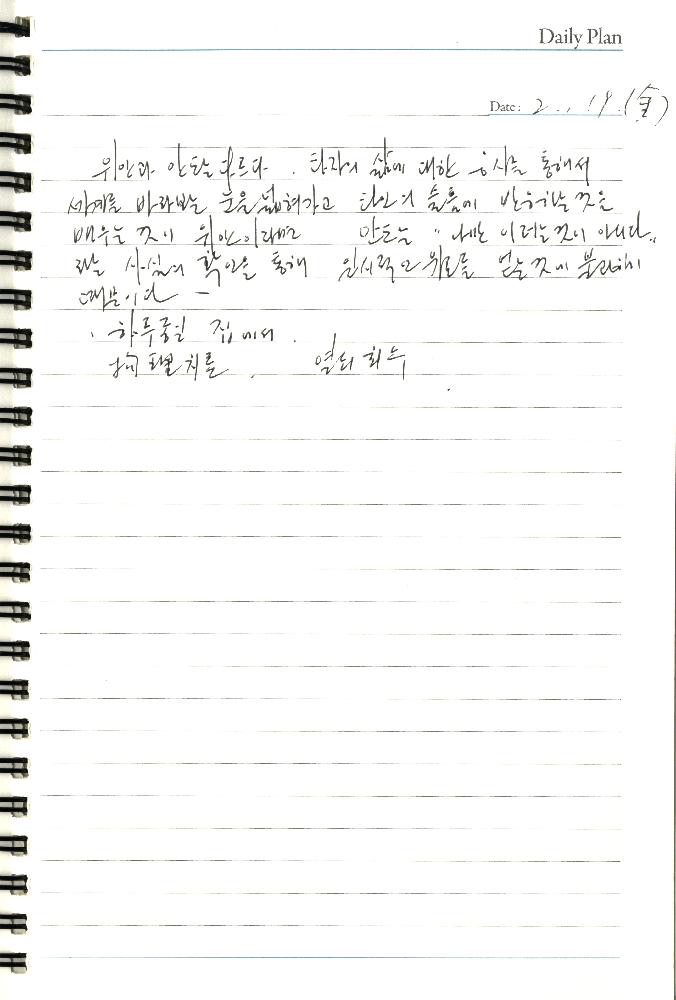 Daily Plan
Date: 2. 19. (金)
위안과 안도는 다르다. 타자의 삶에 대한 응시를 통해서
세계를 바라보는 눈을 넓혀가고 타인의 슬픔에 반응하는 것을
배우는 것이 위안이라면 안도는 "나는 이러는 것이 아니다"
라는 사실의 확인을 통해 일시적인 위로를 얻는 것에 불과하기
때문이다 -
. 하루종일 집에서.